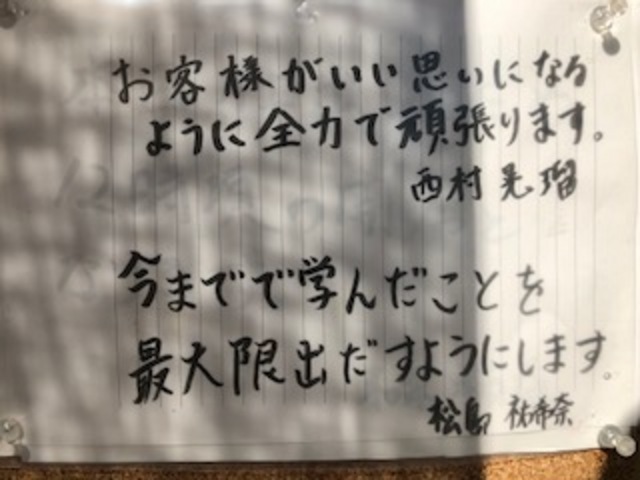 お客様がいい思いになる
ように全力で頑張ります。
西村晃瑠
今までで学んだことを
最大限出だすようにします。
松島祐希奈